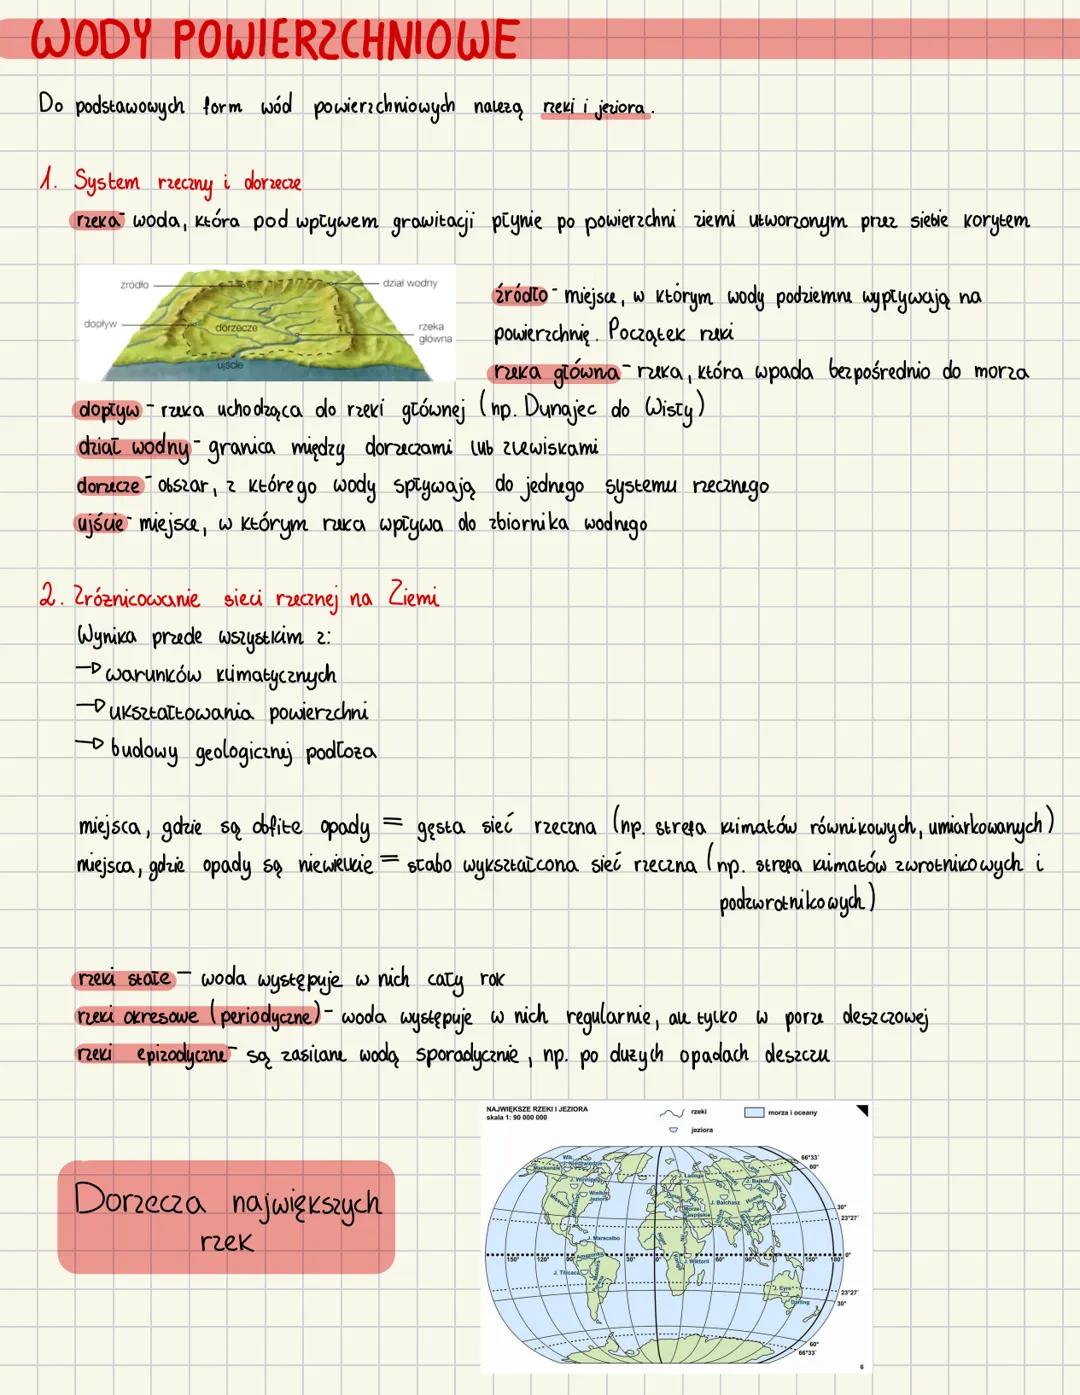 WODY POWIERZCHNIOWE
Do podstawowych form wód powierzchniowych należą rzeki i jeziora.
1. System rzeczny i dorzecze
rzeka - woda, która pod wpływem grawitacji płynie po powierzchni ziemi utworzonym przez siebie korytem
źródło
dział wodny
dopływ
dorzecze
rzeka
główna
ujście
źródło - miejsce, w którym wody podziemne wypływają na
powierzchnię. Początek rzeki
rzeka główna - rzeka, która wpada bezpośrednio do morza
dopływ - rzeka uchodząca do rzeki głównej (np. Dunajec do Wisły)
dział wodny - granica między dorzeczami lub zlewiskami
dorzecze - obszar, z którego wody spływają do jednego systemu rzecznego
ujście - miejsce, w którym rzeka wpływa do zbiornika wodnego
2. Zróżnicowanie sieci rzecznej na Ziemi
Wynika przede wszystkim z:
→ warunków klimatycznych
→ ukształtowania powierzchni
→ budowy geologicznej podłoża
miejsca, gdzie są obfite opady = gęsta sieć rzeczna (np. strefa klimatów równikowych, umiarkowanych)
miejsca, gdzie opady są niewielkie = słabo wykształcona sieć rzeczna (np. strefa klimatów zwrotnikowych i
podzwrotnikowych)
rzeki stałe - woda występuje w nich cały rok
rzeki okresowe (periodyczne) - woda występuje w nich regularnie, ale tylko w porze deszczowej
rzeki epizodyczne - są zasilane wodą sporadycznie, np. po dużych opadach deszczu
NAJWIĘKSZE RZEKI I JEZIORA
skala 1: 90 000 000
rzeki
morza i oceany
jeziora
Dorzecza największych
rzek
66°33'
60°
Mackenzie
J. Winnipeg
Wielkie
Jeziora
J. Bajkał
J. Bałchasz
Morze
Kaspijskie
30°
23°27'
J. Maracaibo
Amazonka
J. Wiktorii
J. Titicaca
150° 120° 90° 30° 0° 60° 90° 150° 180° 0°
J. Eyre
Darling
23°27'
30°
60°
66°33'
6